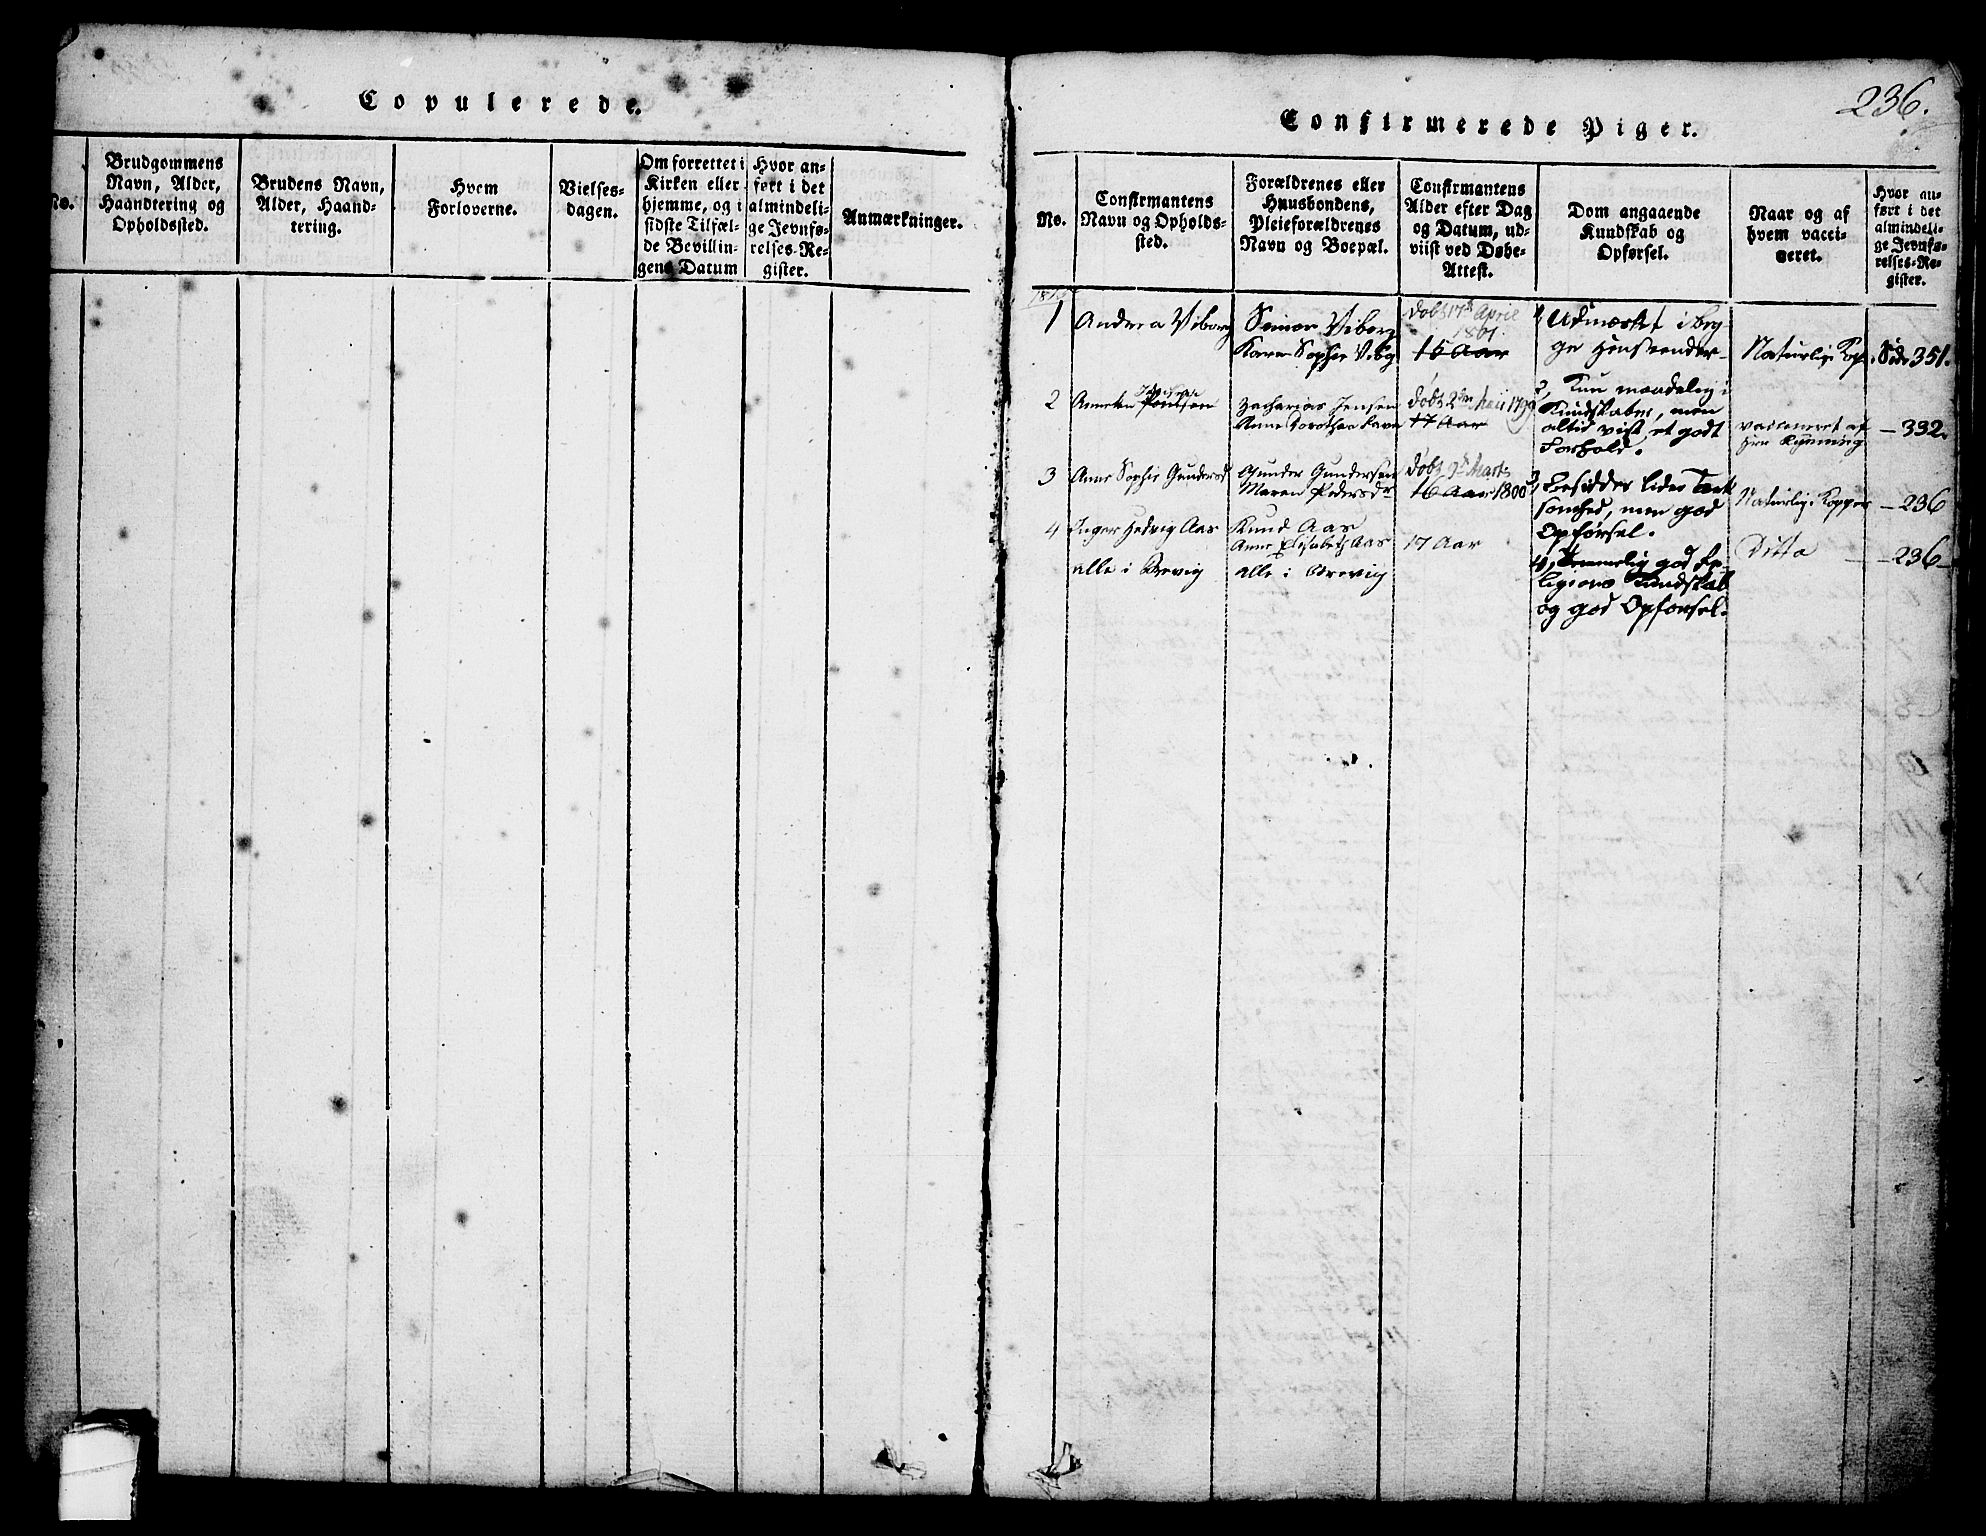 Copulerede.
No.
Brudgommens
Navn, Alder,
Haandtering og
Opholdssted.
Brudens Navn,
Alder, Haand-
tering.
Hvem
Forloverne.
Vielses-
dagen.
Om forrettet i
Kirken eller
hjemme, og i
sidste Tilfæl-
de Bevillin-
gens Datum
Hvor an-
ført i det
almindeli-
ge Jevnfø-
relses-Re-
gister.
Anmærkninger.
236.
Confirmerede Piger.
No.
Confirmantens
Navn og Opholds-
sted.
Forældrenes eller
Huusbondens,
Pleieforældrenes
Navn og Boepæl.
Confirmantens
Alder efter Dag
og Datum, ud-
viist ved Døbe-
Attest.
Dom angaaende
Kundskab og
Opførsel.
Naar og af
hvem vacci-
neret.
Hvor an-
ført i det
almindeli-
ge Jevnfø-
relses-Re-
gister.
1
Andrea Viborg
Simon Viborg
Karen Sophie Vibg
døbt 17de April
1801.
15 Aar
Udmærket i beg-
ge Henseender
Naturlige Kop.
Side 351.
2
Zacharias Jensen
Anne Dorothea
døbt 2den Maii 1799
17 Aar
2, Kun maadelig i
Kundskaber, men
altid viist et godt
Forhold.
vaccineret af
— 332.
3
Anne Sophie Gundersd
Gunder Gundersen
Maren Pedersdr
døbt 9de Marts
16 Aar 1800
3, Besidder liden Tænk
somhed, men god
Opførsel.
Naturlige Kopper
— 236
4
Inger Hedvig Aas
Knud Aas
Anne Elisabeth Aas
17 Aar
4, Temmelig god Re-
ligions Kundskab
og god Opførsel.
Ditto
— 236
alle i Brevig
alle i Brevig